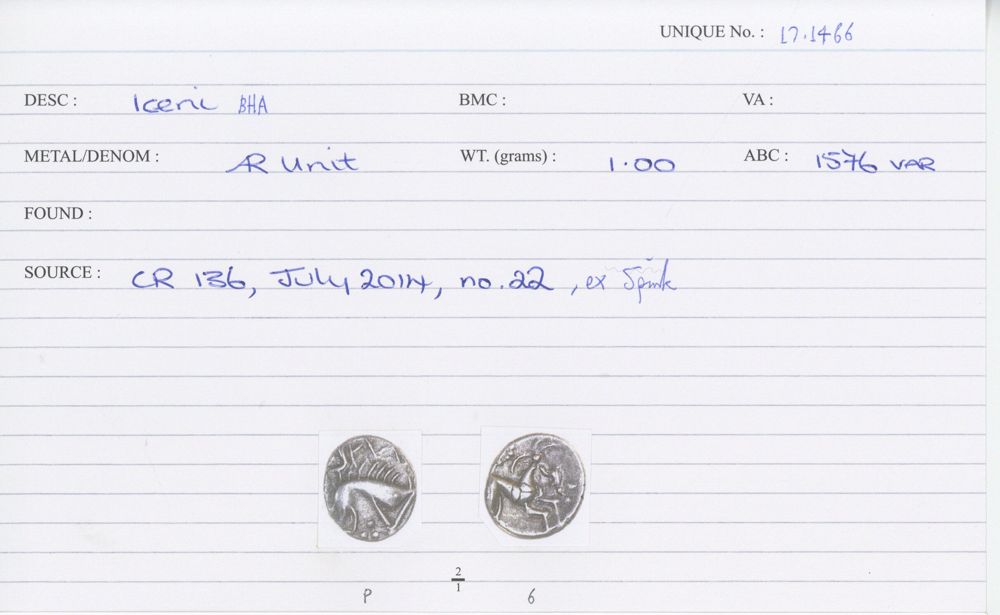 UNIQUE No. : 17.1466
DESC : Iceni BHA BMC : VA :
METAL/DENOM : AR Unit WT. (grams) : 1.00 ABC : 1576 VAR
FOUND :
SOURCE : CR 136, July 2014, no. 22, ex Spink
2
1
P 6